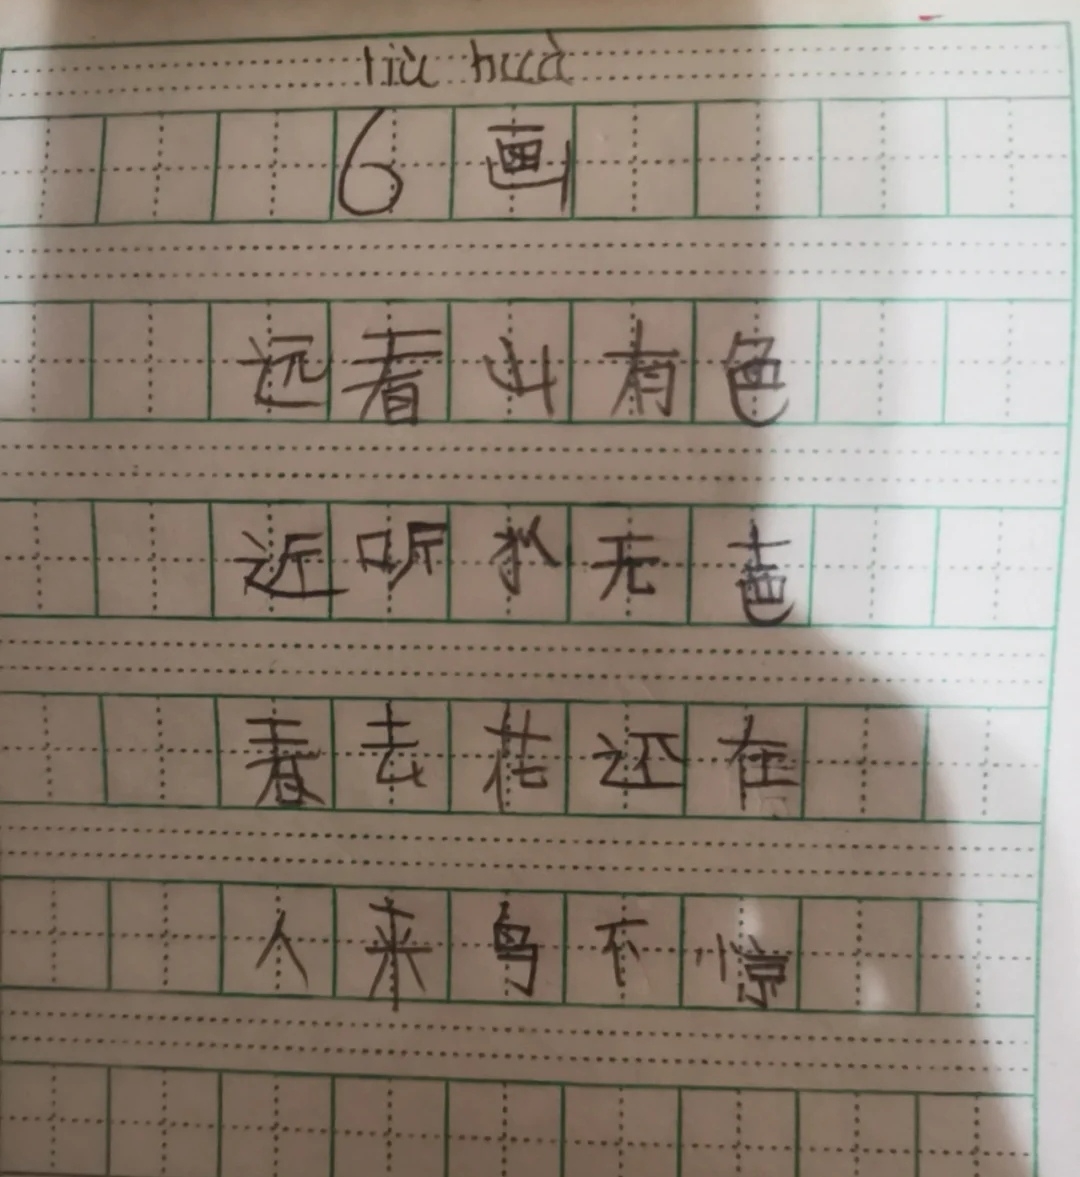 liù huà
6 画
远看山有色
近听水无色
春去花还在
人来鸟不惊